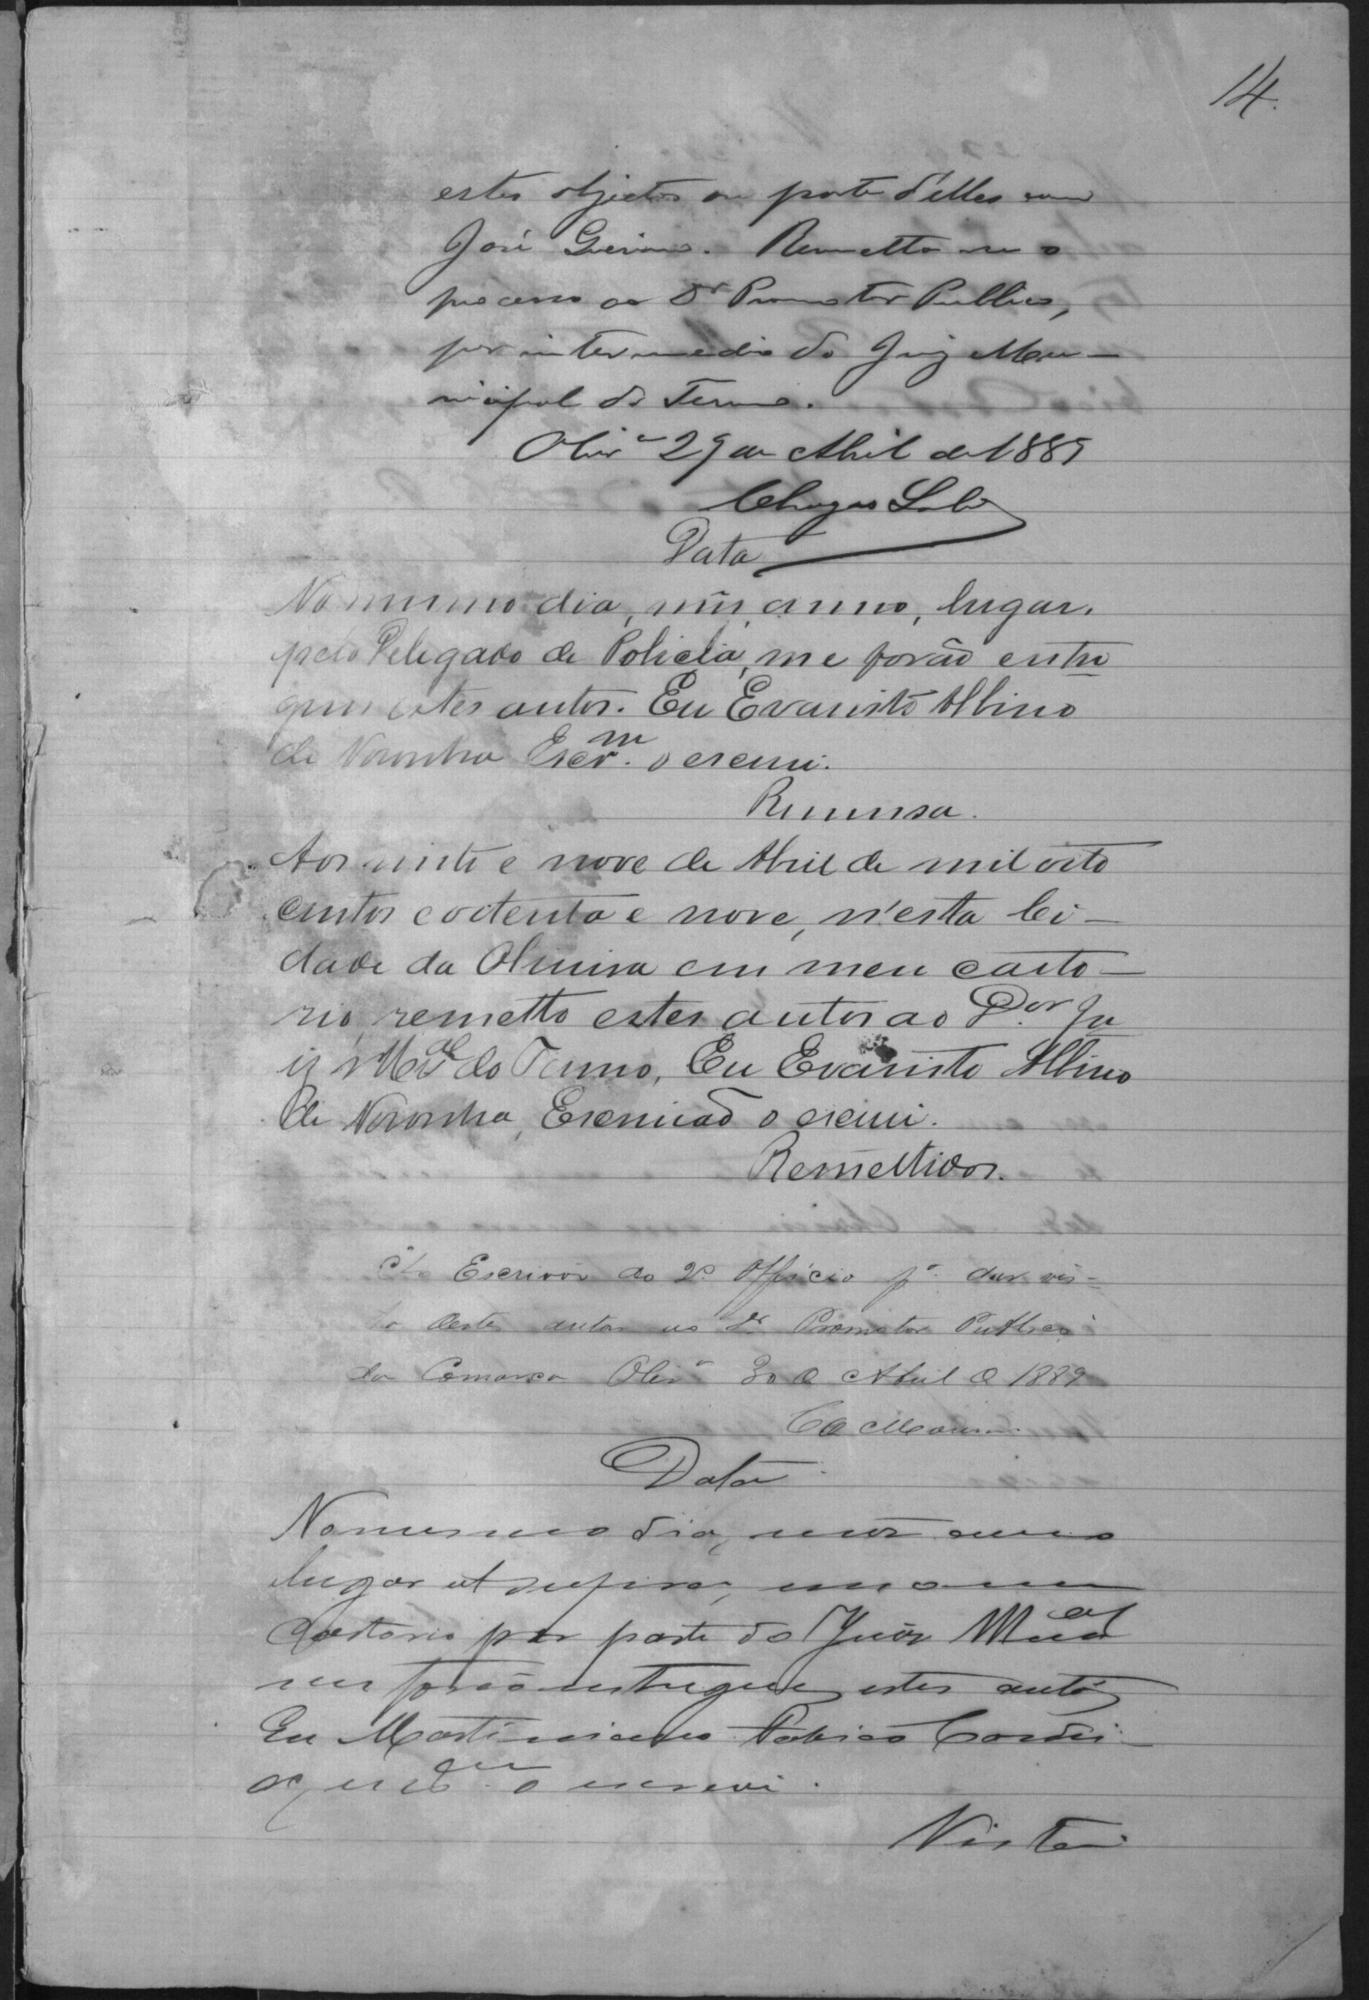 14.
estes objectos ou parte d'elles com
José Guerino. Remetta-se o
processo ao Dr Promotor Publico,
por intermedio do Juiz Mu-
nicipal do Termo.
Olivra 29 de Abril de 1889
Chagas Lobo
Data
No mesmo dia, mes, anno, lugar,
pelo Delegado de Policia, me forão entre
gues estes autos. Eu Evaristo Albino
de Noronha Escr.m o escrevi.
Remessa.
Aos vinte e nove de Abril de mil oito
centos e oitenta e nove, n'esta Ci-
dade da Oliveira em meu carto-
rio, remetto estes autos ao D.or Ju
iz M.al do Termo, Eu Evaristo Albino
de Noronha, Escrivão o escrevi.
Remettidos.
Escrivão do 2º Officio pª dar vis-
ta destes autos ao Dr Promotor Publico
da Comarca Olivª 30 de Abril de 1889
Data
No mesmo dia, mez anno
lugar ut supra, em o meu
Cartorio por parte do Juiz M.al
me forão entregues estes autos
Eu Martiniano
o escrevi.
Vista